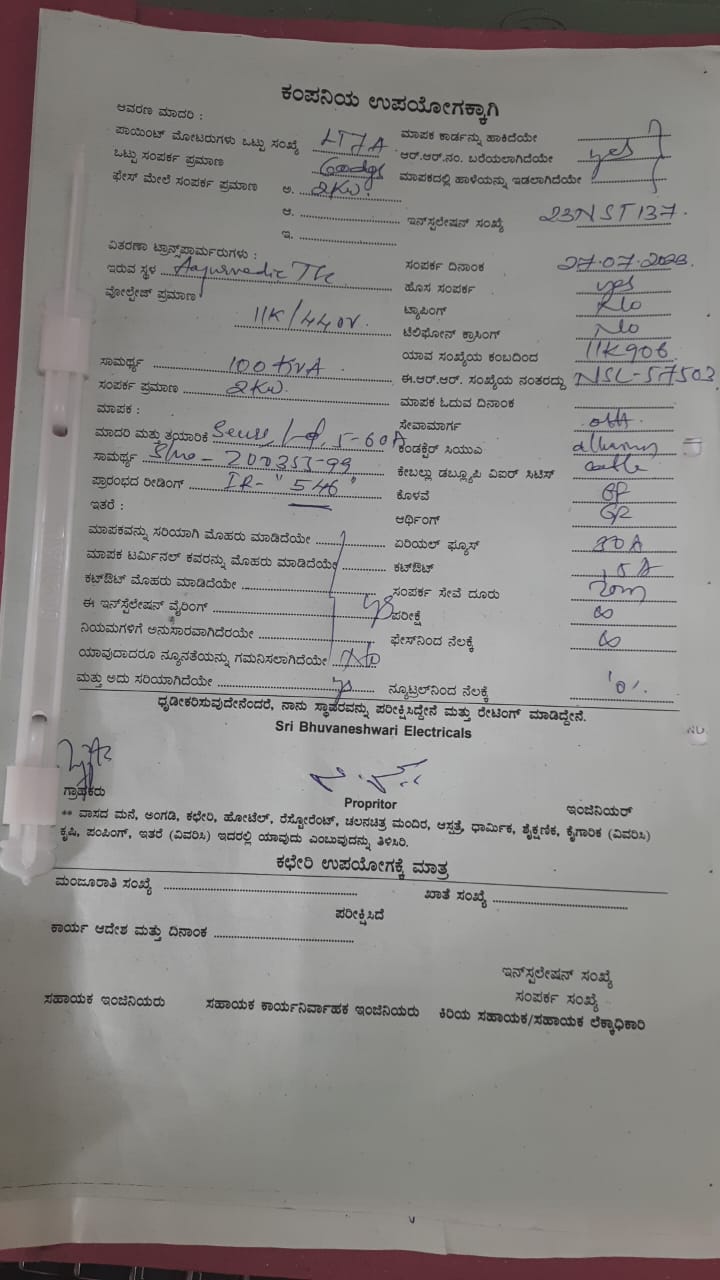 ಕಂಪನಿಯ ಉಪಯೋಗಕ್ಕಾಗಿ
ಆವರಣ ಮಾದರಿ :
ಮಾಪಕ ಕಾರ್ಡನ್ನು ಹಾಕಿದೆಯೇ
ಪಾಯಿಂಟ್ ಮೋಟರುಗಳು ಒಟ್ಟು ಸಂಖ್ಯೆ LT7A ಆರ್.ಆರ್.ನಂ. ಬರೆಯಲಾಗಿದೆಯೇ yes
ಒಟ್ಟು ಸಂಪರ್ಕ ಪ್ರಮಾಣ ಮಾಪಕದಲ್ಲಿ ಹಾಳೆಯನ್ನು ಇಡಲಾಗಿದೆಯೇ
ಫೇಸ್ ಮೇಲೆ ಸಂಪರ್ಕ ಪ್ರಮಾಣ ಅ. 2KW.
ಆ. ಇನ್‌ಸ್ಟಲೇಷನ್ ಸಂಖ್ಯೆ 23NST137.
ಇ.
ವಿತರಣಾ ಟ್ರಾನ್ಸ್‌ಫಾರ್ಮರುಗಳು :
ಸಂಪರ್ಕ ದಿನಾಂಕ 27.07.2023.
ಇರುವ ಸ್ಥಳ Aayurvedic Tc ಹೊಸ ಸಂಪರ್ಕ yes
ವೋಲ್ಟೇಜ್ ಪ್ರಮಾಣ 11K/440V. ಟ್ಯಾಪಿಂಗ್ No
ಟೆಲಿಫೋನ್ ಕ್ರಾಸಿಂಗ್ No
ಯಾವ ಸಂಖ್ಯೆಯ ಕಂಬದಿಂದ 11K906
ಸಾಮರ್ಥ್ಯ 100KVA ಈ.ಆರ್.ಆರ್. ಸಂಖ್ಯೆಯ ನಂತರದ್ದು NSL-57503
ಸಂಪರ್ಕ ಪ್ರಮಾಣ 2KW. ಮಾಪಕ ಓದುವ ದಿನಾಂಕ
ಮಾಪಕ :
ಸೇವಾಮಾರ್ಗ
ಮಾದರಿ ಮತ್ತು ತಯಾರಿಕೆ 5-60A ಕಂಡಕ್ಟೆರ್ ಸಿಯುಎ
ಸಾಮರ್ಥ್ಯ S/no - 200353-99 ಕೇಬಲ್ಲು ಡಬ್ಲ್ಯೂಪಿ ವಿಐರ್ ಸಿಟಿಸ್ cable
ಪ್ರಾರಂಭದ ರೀಡಿಂಗ್ IR- "546" ಕೊಳವೆ GP
ಇತರೆ :
ಆರ್ಥಿಂಗ್
ಮಾಪಕವನ್ನು ಸರಿಯಾಗಿ ಮೊಹರು ಮಾಡಿದೆಯೇ ಏರಿಯಲ್ ಫ್ಯೂಸ್
ಮಾಪಕ ಟರ್ಮಿನಲ್ ಕವರನ್ನು ಮೊಹರು ಮಾಡಿದೆಯೇ ಕಟ್ಔಟ್ 15A
ಕಟ್ಔಟ್ ಮೊಹರು ಮಾಡಿದೆಯೇ ಸಂಪರ್ಕ ಸೇವೆ ದೂರು 20m
ಈ ಇನ್‌ಸ್ಟಲೇಷನ್ ವೈರಿಂಗ್ yes ಪರೀಕ್ಷೆ ∞
ನಿಯಮಗಳಿಗೆ ಅನುಸಾರವಾಗಿದೆರಯೇ ಫೇಸ್‌ನಿಂದ ನೆಲಕ್ಕೆ ∞
ಯಾವುದಾದರೂ ನ್ಯೂನತೆಯನ್ನು ಗಮನಿಸಲಾಗಿದೆಯೇ No
ಮತ್ತು ಅದು ಸರಿಯಾಗಿದೆಯೇ yes ನ್ಯೂಟ್ರಲ್‌ನಿಂದ ನೆಲಕ್ಕೆ '0'.
ಧೃಡೀಕರಿಸುವುದೇನೆಂದರೆ, ನಾನು ಸ್ಥಾವರವನ್ನು ಪರೀಕ್ಷಿಸಿದ್ದೇನೆ ಮತ್ತು ರೇಟಿಂಗ್ ಮಾಡಿದ್ದೇನೆ.
Sri Bhuvaneshwari Electricals
ಗ್ರಾಹಕರು Propritor ಇಂಜಿನಿಯರ್
** ವಾಸದ ಮನೆ, ಅಂಗಡಿ, ಕಛೇರಿ, ಹೋಟೆಲ್, ರೆಸ್ಟೋರೆಂಟ್, ಚಲನಚಿತ್ರ ಮಂದಿರ, ಆಸ್ಪತ್ರೆ, ಧಾರ್ಮಿಕ, ಶೈಕ್ಷಣಿಕ, ಕೈಗಾರಿಕ (ವಿವರಿಸಿ)
ಕೃಷಿ, ಪಂಪಿಂಗ್, ಇತರೆ (ವಿವರಿಸಿ) ಇದರಲ್ಲಿ ಯಾವುದು ಎಂಬುವುದನ್ನು ತಿಳಿಸಿರಿ.
ಕಛೇರಿ ಉಪಯೋಗಕ್ಕೆ ಮಾತ್ರ
ಮಂಜೂರಾತಿ ಸಂಖ್ಯೆ ಖಾತೆ ಸಂಖ್ಯೆ
ಪರೀಕ್ಷಿಸಿದೆ
ಕಾರ್ಯ ಆದೇಶ ಮತ್ತು ದಿನಾಂಕ
ಇನ್‌ಸ್ಟಲೇಷನ್ ಸಂಖ್ಯೆ
ಸಂಪರ್ಕ ಸಂಖ್ಯೆ
ಸಹಾಯಕ ಇಂಜಿನಿಯರು ಸಹಾಯಕ ಕಾರ್ಯನಿರ್ವಾಹಕ ಇಂಜಿನಿಯರು ಕಿರಿಯ ಸಹಾಯಕ/ಸಹಾಯಕ ಲೆಕ್ಕಾಧಿಕಾರಿ